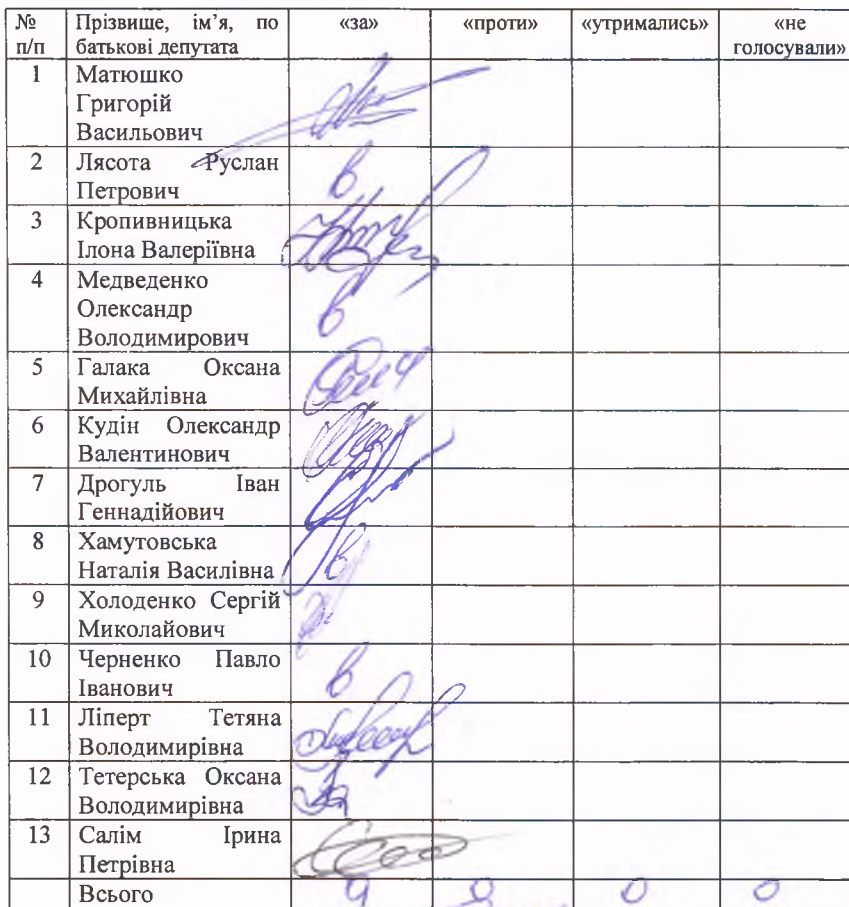 № п/п Прізвище, ім’я, по батькові депутата «за» «проти» «утримались» «не голосували»
1 Матюшко
Григорій
Васильович
2 Лясота Руслан
Петрович
в
3 Кропивницька
Ілона Валеріївна
4 Медведенко
Олександр
Володимирович
в
5 Галака Оксана
Михайлівна
6 Кудін Олександр
Валентинович
7 Дрогуль Іван
Геннадійович
8 Хамутовська
Наталія Василівна
в
9 Холоденко Сергій
Миколайович
10 Черненко Павло
Іванович
в
11 Ліперт Тетяна
Володимирівна
12 Тетерська Оксана
Володимирівна
13 Салім Ірина
Петрівна
Всього 9 0 0 0